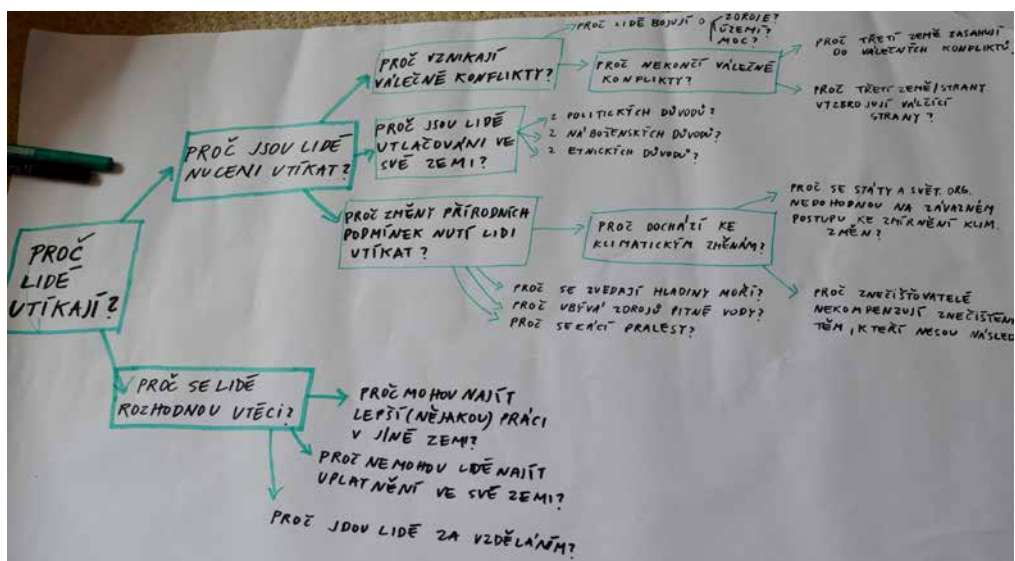 PROČ
LIDÉ
UTÍKAJÍ?
PROČ JSOU LIDÉ
NUCENI UTÍKAT?
PROČ VZNIKAJÍ
VÁLEČNÉ KONFLIKTY?
PROČ LIDÉ BOJUJÍ O
ZDROJE?
ÚZEMÍ?
MOC?
PROČ NEKONČÍ VÁLEČNÉ
KONFLIKTY?
PROČ TŘETÍ ZEMĚ ZASAHUJÍ
DO VÁLEČNÝCH KONFLIKTŮ
PROČ TŘETÍ ZEMĚ/STRANY
VYZBROJUJÍ VÁLČÍCÍ
STRANY?
PROČ JSOU LIDÉ
UTLAČOVÁNI VE
SVÉ ZEMI?
Z POLITICKÝCH DŮVODŮ?
Z NÁBOŽENSKÝCH DŮVODŮ?
Z ETNICKÝCH DŮVODŮ?
PROČ ZMĚNY PŘÍRODNÍCH
PODMÍNEK NUTÍ LIDI
UTÍKAT?
PROČ DOCHÁZÍ KE
KLIMATICKÝM ZMĚNÁM?
PROČ SE STÁTY A SVĚT. ORG.
NEDOHODNOU NA ZÁVAZNÉM
POSTUPU KE ZMÍRNĚNÍ KLIM.
ZMĚN?
PROČ ZNEČIŠŤOVATELÉ
NEKOMPENZUJÍ ZNEČIŠTĚNÍ
TĚM, KTEŘÍ NESOU NÁSLED
PROČ SE ZVEDAJÍ HLADINY MOŘÍ?
PROČ UBÝVÁ ZDROJŮ PITNÉ VODY?
PROČ SE KÁCÍ PRALESY?
PROČ SE LIDÉ
ROZHODNOU UTÉCI?
PROČ MOHOU NAJÍT
LEPŠÍ (NĚJAKOU) PRÁCI
V JINÉ ZEMI?
PROČ NEMOHOU LIDÉ NAJÍT
UPLATNĚNÍ VE SVÉ ZEMI?
PROČ JDOU LIDÉ ZA VZDĚLÁNÍM?